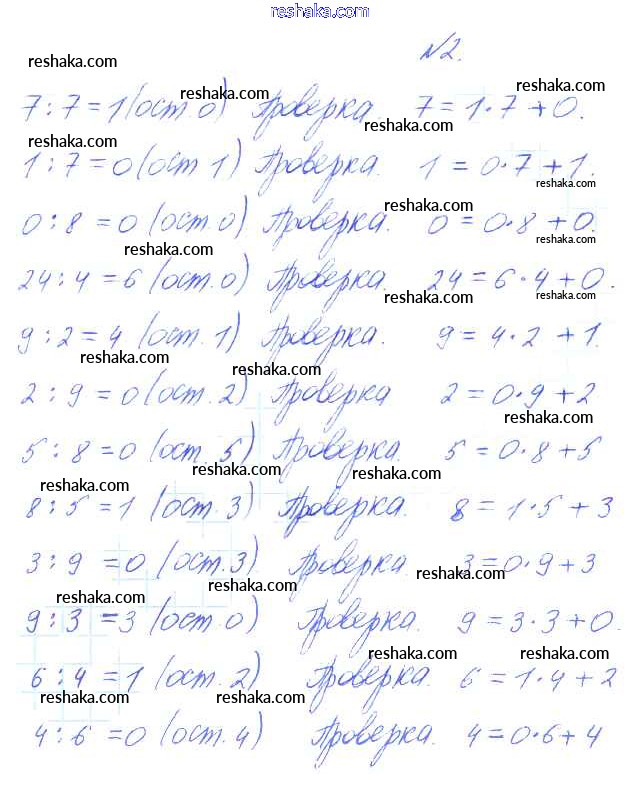 reshaka.com
N2.
reshaka.com
reshaka.com reshaka.com
7 : 7 = 1 (ост. 0) Проверка. 7 = 1 · 7 + 0.
reshaka.com reshaka.com
1 : 7 = 0 (ост 1) Проверка. 1 = 0 · 7 + 1.
reshaka.com
reshaka.com
0 : 8 = 0 (ост. 0) Проверка. 0 = 0 · 8 + 0.
reshaka.com reshaka.com
24 : 4 = 6 (ост. 0) Проверка. 24 = 6 · 4 + 0.
reshaka.com reshaka.com
9 : 2 = 4 (ост. 1) Проверка. 9 = 4 · 2 + 1.
reshaka.com reshaka.com
2 : 9 = 0 (ост. 2) Проверка 2 = 0 · 9 + 2
reshaka.com
5 : 8 = 0 (ост. 5) Проверка. 5 = 0 · 8 + 5
reshaka.com reshaka.com
8 : 5 = 1 (ост. 3) Проверка. 8 = 1 · 5 + 3
reshaka.com
3 : 9 = 0 (ост. 3) Проверка. 3 = 0 · 9 + 3
reshaka.com reshaka.com
9 : 3 = 3 (ост. 0) Проверка. 9 = 3 · 3 + 0.
reshaka.com reshaka.com
6 : 4 = 1 (ост. 2) Проверка. 6 = 1 · 4 + 2
reshaka.com reshaka.com
4 : 6 = 0 (ост. 4) Проверка. 4 = 0 · 6 + 4